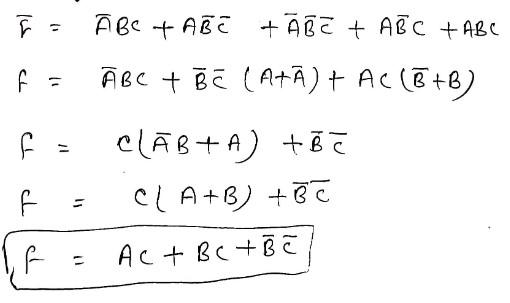 F̅ = A̅BC + AB̅C̅ + A̅B̅C̅ + AB̅C + ABC
F = A̅BC + B̅C̅ (A+A̅) + AC(B̅+B)
F = C(A̅B+A) + B̅C̅
F = C(A+B) + B̅C̅
F = AC + BC + B̅C̅